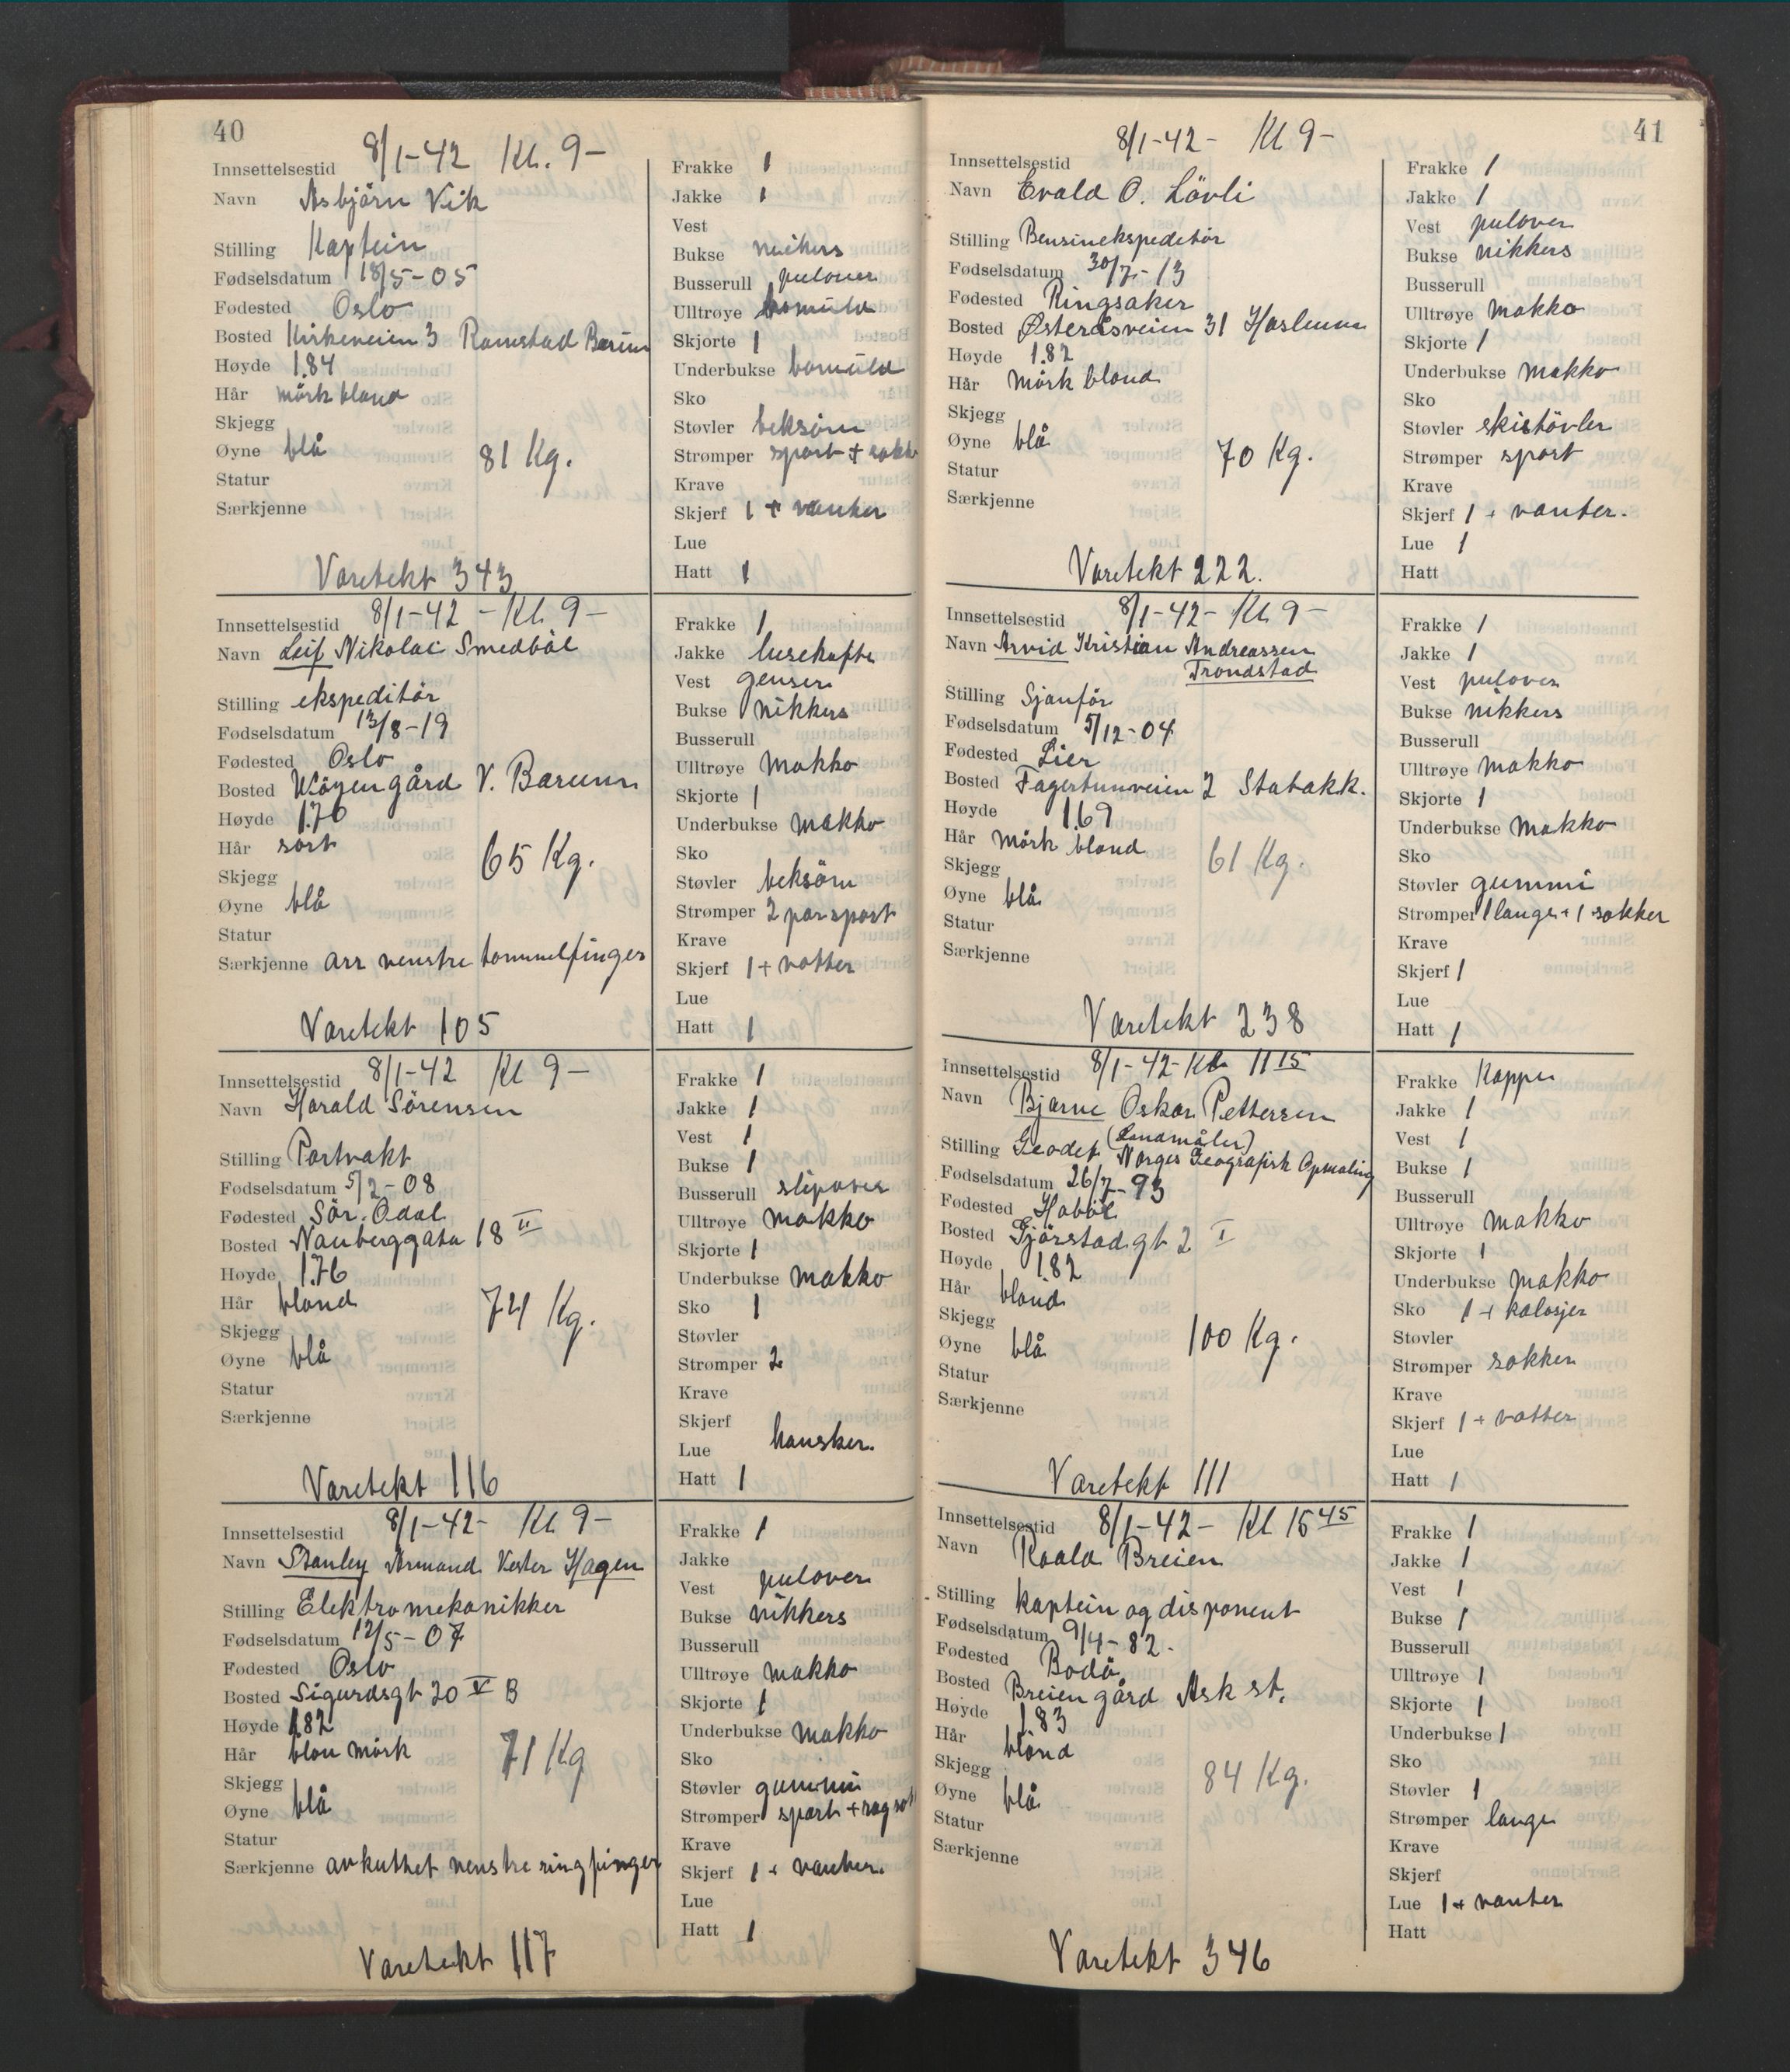 40
Innsettelsestid 8/1-42 Kl. 9-
Navn Asbjörn Vik
Stilling Kaptein
Fødselsdatum 18/5-05
Fødested Oslo
Bosted Kirkeveien 3 Ramstad Bærum
Høyde 1.84
Hår mörk blond
Skjegg
Øyne blå 81 Kg.
Statur
Særkjenne
Varetekt 343
Frakke 1
Jakke 1
Vest
Bukse nikkers
Busserull pulover
Ulltrøye bomuld
Skjorte 1
Underbukse bomuld
Sko
Støvler beksöm
Strømper sport + sokk
Krave
Skjerf 1 + vanter
Lue
Hatt 1
Innsettelsestid 8/1-42 - Kl. 9-
Navn Leif Nikolai Smedböl
Stilling ekspeditör
Fødselsdatum 13/8-19
Fødested Oslo
Bosted Wöyen gård V. Bærum
Høyde 1.70
Hår sort
Skjegg 65 Kg.
Øyne blå
Statur
Særkjenne arr venstre tommelfinger
Varetekt 105
Frakke 1
Jakke lusekofte
Vest genser
Bukse nikkers
Busserull
Ulltrøye makko
Skjorte 1
Underbukse makko
Sko
Støvler beksöm
Strømper 2 par sport
Krave
Skjerf 1 + votter
Lue
Hatt 1
Innsettelsestid 8/1-42 Kl 9-
Navn Harald Sörensen
Stilling Portvakt
Fødselsdatum 5/2-08
Fødested Sör. Odal
Bosted Nanberggata 18 II
Høyde 1.76
Hår blond 74 Kg.
Skjegg
Øyne blå
Statur
Særkjenne
Varetekt 116
Frakke 1
Jakke 1
Vest 1
Bukse 1
Busserull slipover
Ulltrøye makko
Skjorte 1
Underbukse makko
Sko 1
Støvler
Strømper 2
Krave
Skjerf
Lue hansker.
Hatt 1
Innsettelsestid 8/1-42- Kl. 9-
Navn Stanley Armand Vester Hagen
Stilling Elektromekanikker
Fødselsdatum 12/5-07
Fødested Oslo
Bosted Sigurdsgt 20 V B
Høyde 1.82
Hår blon mörk 71 Kg
Skjegg
Øyne blå
Statur
Særkjenne avkuttet venstre ringfinger
Varetekt 117
Frakke 1
Jakke
Vest pulover
Bukse nikkers
Busserull
Ulltrøye makko
Skjorte 1
Underbukse makko
Sko
Støvler gummi
Strømper sport +
Krave
Skjerf 1 + vanter.
Lue
Hatt 1
41
Innsettelsestid 8/1-42- Kl 9-
Navn Evald O. Lövli
Stilling Bensinekspeditör
Fødselsdatum 30/7-13
Fødested Ringsaker
Bosted Østeråsveien 31 Haslum
Høyde 1.82
Hår mörk blond
Skjegg
Øyne blå 70 Kg.
Statur
Særkjenne
Varetekt 222.
Frakke 1
Jakke 1
Vest pulover
Bukse nikkers
Busserull
Ulltrøye makko
Skjorte 1
Underbukse makko
Sko
Støvler skistövler
Strømper sport
Krave
Skjerf 1 + vanter.
Lue 1
Hatt
Innsettelsestid 8/1-42- Kl. 9-
Navn Arvid Kristian Andreassen
Trondstad
Stilling Sjauför
Fødselsdatum 5/12-04
Fødested Lier
Bosted Fagertunveien 2 Stabækk.
Høyde 1.69
Hår mörk blond 61 Kg.
Skjegg
Øyne blå
Statur
Særkjenne
Varetekt 238
Frakke 1
Jakke 1
Vest pulover
Bukse nikkers
Busserull
Ulltrøye makko
Skjorte 1
Underbukse makko
Sko
Støvler gummi
Strømper 1 lange + 1 sokker
Krave
Skjerf 1
Lue
Hatt 1
Innsettelsestid 8/1-42- Kl. 11 15
Navn Bjarne Oskar Pettersen
(Landmåler)
Stilling Geodet Norges Geografisk Opmaling
Fødselsdatum 26/7-93
Fødested Hobøl
Bosted Gjörstad gt 2 I
Høyde 1.82
Hår blond
Skjegg
Øyne blå 100 Kg.
Statur
Særkjenne
Varetekt 111
Frakke Kappe
Jakke 1
Vest 1
Bukse 1
Busserull
Ulltrøye makko
Skjorte 1
Underbukse makko
Sko 1 + kalosjer
Støvler
Strømper sokker
Krave
Skjerf 1 + votter
Lue
Hatt 1
Innsettelsestid 8/1-42- Kl 15 45
Navn Roald Breien
Stilling kaptein og disponent
Fødselsdatum 9/4-82-
Fødested Bodö
Bosted Breien gård Ask st.
Høyde 1.83
Hår blond
Skjegg 84 Kg.
Øyne blå
Statur
Særkjenne
Varetekt 346
Frakke 1
Jakke 1
Vest 1
Bukse 1
Busserull
Ulltrøye 1
Skjorte 1
Underbukse 1
Sko
Støvler 1
Strømper lange
Krave
Skjerf
Lue 1 + vanter
Hatt